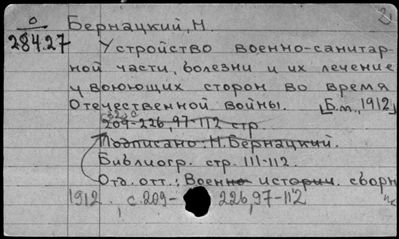 0
284.27
Бернацкий, Н.
Устройство военно-санитар-
ной части, болезни и их лечение
у воюющих сторон во время
Отечественной войны. [Б.м., 1912]
209-226, 97-112 стр.
Подписано: Н. Бернацкий.
Библиогр. стр. 111-112.
Отд. отт.: Военно историч. сборник
1912. , с. 209- 226, 97-112